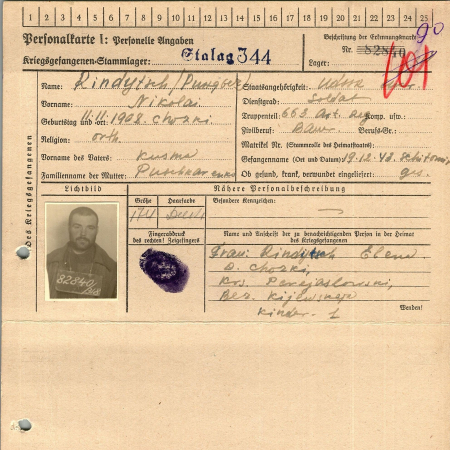 1 2 3 4 5 6 7 8 9 10 11 12 13 14 15 16 17 18 19 20 21 22 23 24 25
Personalkarte I: Personelle Angaben
Kriegsgefangenen-Stammlager: Stalag 344
Beschriftung der Erkennungsmarke
Nr. 82840
Lager:
90
Des Kriegsgefangenen
Name: Rindytsch
Vorname: Nikolai
Geburtstag und -ort: 11.11.1908. Chozki
Religion: orth.
Vorname des Vaters: Kusma
Familienname der Mutter:
Staatsangehörigkeit: UdSSR
Dienstgrad: Soldat
Truppenteil: 663 Art. Reg Komp. usw.:
Zivilberuf: Bauer Berufs-Gr.:
Matrikel Nr. (Stammrolle des Heimatstaates):
Gefangennahme (Ort und Datum): 19.12.43. Schitomir
Ob gesund, krank, verwundet eingeliefert: ges.
Lichtbild
82840
Nähere Personalbeschreibung
Größe
Haarfarbe
Besondere Kennzeichen:
Fingerabdruck
des rechten! Zeigefingers
Name und Anschrift der zu benachrichtigenden Person in der Heimat
des Kriegsgefangenen
Frau: Rindytsch Elena
D. Chozki,
Perejaslowski,
Bez. Kijewskaja
Kinder- 1
Wenden!